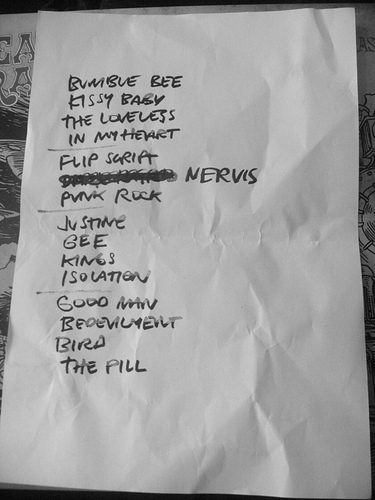 BUMBLE BEE
KISSY BABY
THE LOVELESS
IN MY HEART
FLIP SCRIPT
NERVIS
PUNK ROCK
JUSTINE
GEE
KINGS
ISOLATION
GOOD MAN
BEDEVILMENT
BIRD
THE PILL